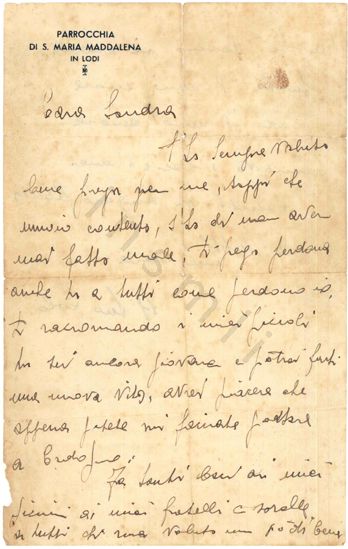 PARROCCHIA
DI S. MARIA MADDALENA
IN LODI
Cara Sandra
T'ho sempre voluto
bene prega per me, sappi che
muoio contento, s'ho di non aver
mai fatto male, ti prego perdona
anche tu a tutti come perdono io,
ti racromando i miei piccoli
tu sei ancora giovane e potrai farti
una nuova vita, avrei piacere che
appena potete mi facciate portare
a
Fa tanti baci ai miei
ai miei fratelli e sorelle
a tutti chi ma voluto un pò di bene